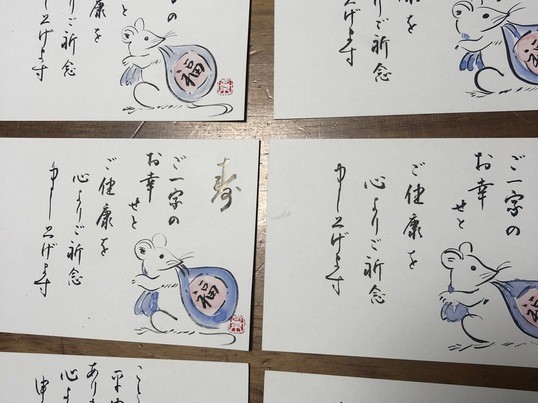 の
せと
ご健康を
心よりご祈念
申し上げます
福
ご健康を
心よりご祈念
申し上げます
福
寿
ご一家の
お幸せと
ご健康を
心よりご祈念
申し上げます
福
ご一家の
お幸せと
ご健康を
心よりご祈念
申し上げます
福